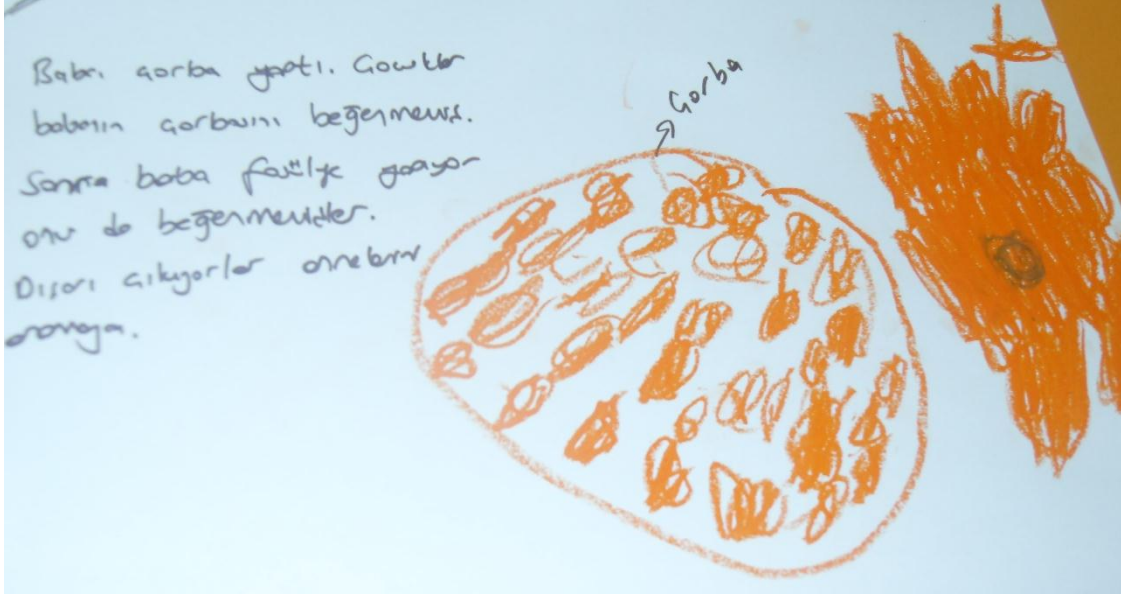 Baba çorba yaptı. Çocuklar
babanın çorbasını beğenmemiş.
Sonra baba fasülye yapıyor
onu da beğenmemişler.
Dışarı çıkıyorlar annelerini
aramaya.
Çorba